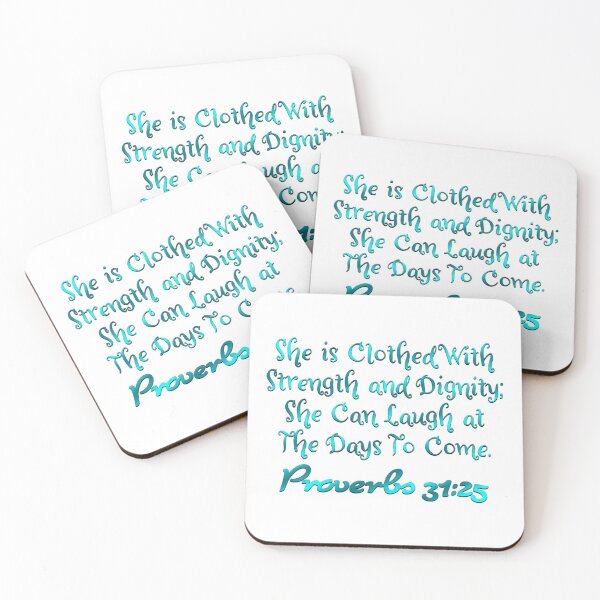 She is Clothed With
Strength and Dignity;
She Can Laugh
Come.
She is Clothed With
Strength and Dignity;
She Can Laugh at
The Days To Come.
Proverbs 31:25
She is Clothed With
Strength and Dignity;
She Can Laugh at
The Days To Come.
Proverbs
She is Clothed With
Strength and Dignity;
She Can Laugh at
The Days To Come.
Proverbs 31:25